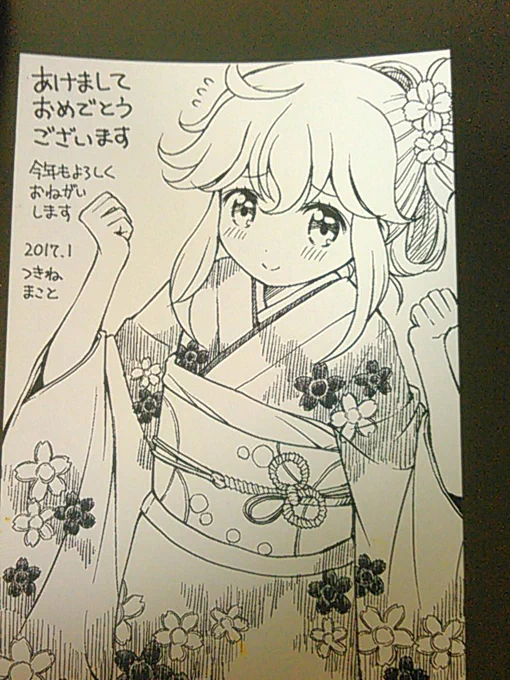 あけまして
おめでとう
ございます
今年もよろしく
おねがい
します
2017.1
つきね
まこと